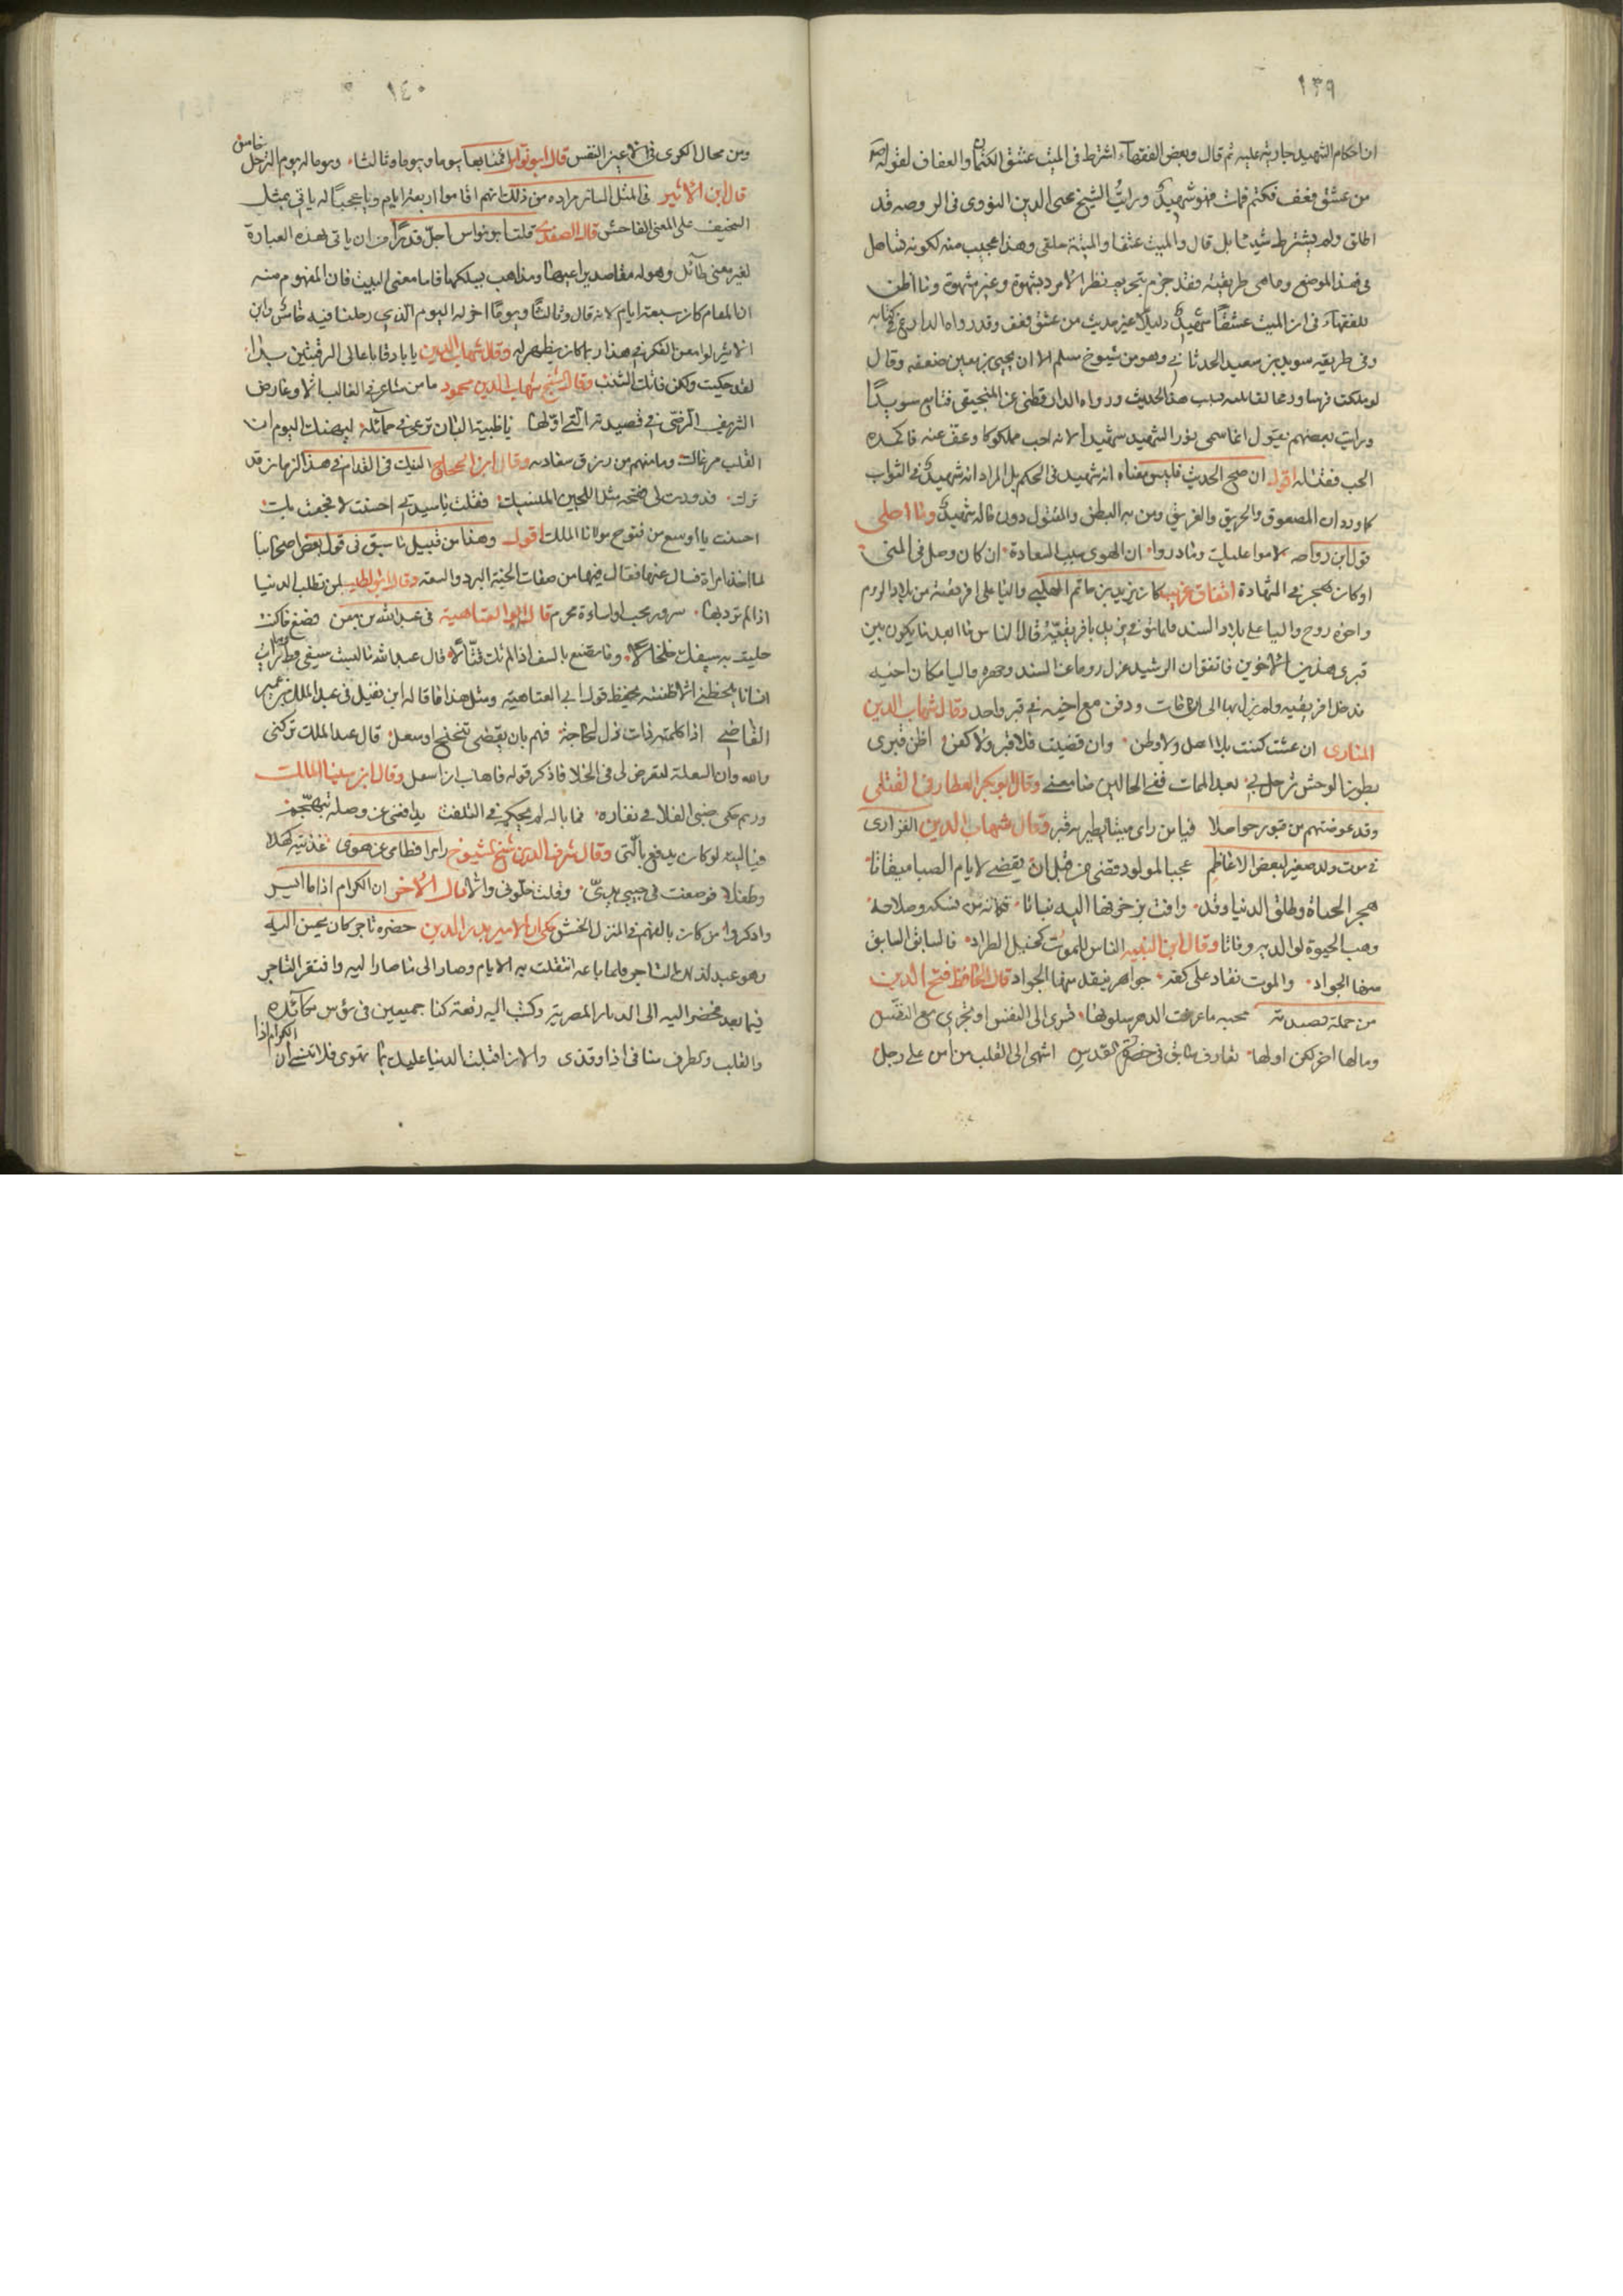 ١٣٩
ان احكام الشهيد جارية عليه ثم قال وبعض الفقهاء اشترط في الميت عشق الكتمان والعفاف لقوله صم
من عشق فعف فكتم فمات فهو شهيد ورايت الشيخ محيي الدين النووي في الروضه قد
اطلق ولم يشترط شيئا بل قال والميت عشقا والميتة طلقى وهذا عجيب منه لكونه تساهل
في هذا الموضع وما هي طريقته فقد جزم بتحريم نظر الامرد بشهوة وغير شهوة وما اظن
للفقهاء في ان الميت عشقا شهيد دليلا غير حديث من عشق فعف وقد رواه الدارع في كتابه
وفي طريقه سويد بن سعيد الحدثاني وهو من شيوخ مسلم الا ان يحيى بن معين ضعفه وقال
لو ملكت فرسا ورمحا لقاتلته بسبب هذا الحديث ورواه الدارقطني عن المنجنيقي فتابع سويدا
ورايت بعضهم يقول انما سمي نور الشهيد شهيدا لانه احب مملوكا وعف عنه فاكمده
الحب فقتله اقول ان صح الحديث فليس معناه انه شهيد في الحكم بل المراد انه شهيد في الثواب
كما ورد ان المصعوق والحريق والغريق ومن به البطن والمقتول دون ماله شهيد وما احلى
قول ابن رواحه لاموا عليك وما دروا ان الهوى سبب السعادة ان كان وصل فالمنى
او كان هجر فالشهادة اتفاق غريب كان يزيد بن حاتم المهلبي واليا على افريقية من بلاد الروم
واخوه روح واليا على بلاد السند فلما توفي يزيد بافريقية قال الناس ما ابعد ما يكون بين
قبري هذين الاخوين فاتفق ان الرشيد عزل روحا عن السند وجهزه واليا مكان اخيه
فدخل افريقيه ولم يزل بها الى ان مات ودفن مع اخيه في قبر واحد وقال شهاب الدين
المناري ان عشت كنت بلا اهل ولا وطن وان قضيت فلا قبر ولا كفن اظن قبري
بطون الوحش ترحل بي بعد الممات ففي الحالين ما معني وقال ابو بكر العطار في القتلى
وقد عوضتهم من قبور حواصلا فيا من راى ميتا يطير به قبر وقال شهاب الدين الفزاري
في موت ولد صغير لبعض الاعاظم عجبا لمولود قضى من قبل ان يقضي لايام الصبا ميقاتا
هجر الحياة وطلق الدنيا وقد وافت بزخرفها اليه نباتا فكانه من نسكه وصلاحه
وهب الحيوة لوالديه وماتا وقال ابن النبيه الناس للموت كخيل الطراد فالسابق السابق
منها الجواد والموت نقاد على كفه جواهر ينقد منها الجواد قال الحافظ فتح الدين
من جملة قصيدته محبه ما عرفت الدهر سلوتها تسري الى النفس او تجري مع النفس
وما لها اخر لكن اولها تعارف سابق في حضرة القدس اشهى الى القلب من امن على وجل
١٤٠
ومن مجال الكرى في الاعين النعس قال ابو نواس اقمنا بها يوما ويوما وثالثا ويوما له يوم الترحل خامس
قال ابن الاثير في المثل السائر مراده من ذلك انهم اقاموا اربعة ايام ويا عجبا له ياتي بمثل
السخيف على المعنى الفاحش قال الصفدي قلت ابو نواس اجل قدرا من ان ياتي بهذه العبارة
لغير معنى طائل وهو له مقاصد يراعيها ومذاهب يسلكها فاما معنى البيت فان المفهوم منه
ان المقام كان سبعة ايام لانه قال وثالثا ويوما اخر له اليوم الذي رحلنا فيه خامس وابن
الاثير لو امعن الفكر في هذا ربما كان يظهر له وقال شهاب الدين يا بارقا باعالي الرقمتين بدا
لقد حكيت ولكن فاتك الشنب وقال الشيخ شهاب الدين محمود ما من شاعر في الغالب الا وعارض
الشريف الرضي في قصيدته التي اولها يا ظبية البان ترعى في خمائله ليهنك اليوم ان
القلب مرعاك وما منهم من رزق سعادته وقال ابن الحجاج
احسنت يا اوسع من فتوح مولانا الملك اقول وهذا من قبيل ما سبق في قول بعض اصحابنا
لما اخذ امراة فسال عنها فقال فيها من صفات الجنة البرد والسعة وقال ابو الطيب لمن تطلب الدنيا
اذا لم ترد بها سرور محب او اساءة مجرم قال ابو العتاهية في عبد الله بن معن فصغ ما كنت
حليت به سيفك خلخالا وما تصنع بالسيف اذا لم تك قتالا قال عبد الله ما لبست سيفي قط فرايت
انسانا يلحظني الا ظننته يحفظ قول ابي العتاهية ومثل هذا ما قاله ابن نفيل في عبد الملك بن عمير
القاضي اذا كلمته ذات دل لحاجة فهم بان يقضي تنحنح او سعل قال عبد الملك تركني
والله وان السعلة لتعرض لي في الخلا فاذكر قوله فاهاب ان اسعل وقال ابن سينا الملك
وريم حكى ظبي الفلا في نفاره فما باله لم يحكه في التلفت
فيا ليته لو كان يدفع بالتي وقال شرف الدين شيخ الشيوخ
وقال الاخر ان الكرام اذا ما ايسر
واذكروا من كان يالفهم في المنزل الخشن حكى ان الامير بدر الدين حضره تاجر كان يحسن اليه
وهو عبد لذلك التاجر فلما باعه انتقلت به الايام وصار الى ما صار اليه وافتقر التاجر
فيما بعد فحضر اليه الى الديار المصرية وكتب اليه رقعة كنا جميعين في بؤس نكابده
والقلب والطرف منا في اذا وقذى والان اقبلت الدنيا عليك بما تهوى فلا تنسني ان الكرام اذا